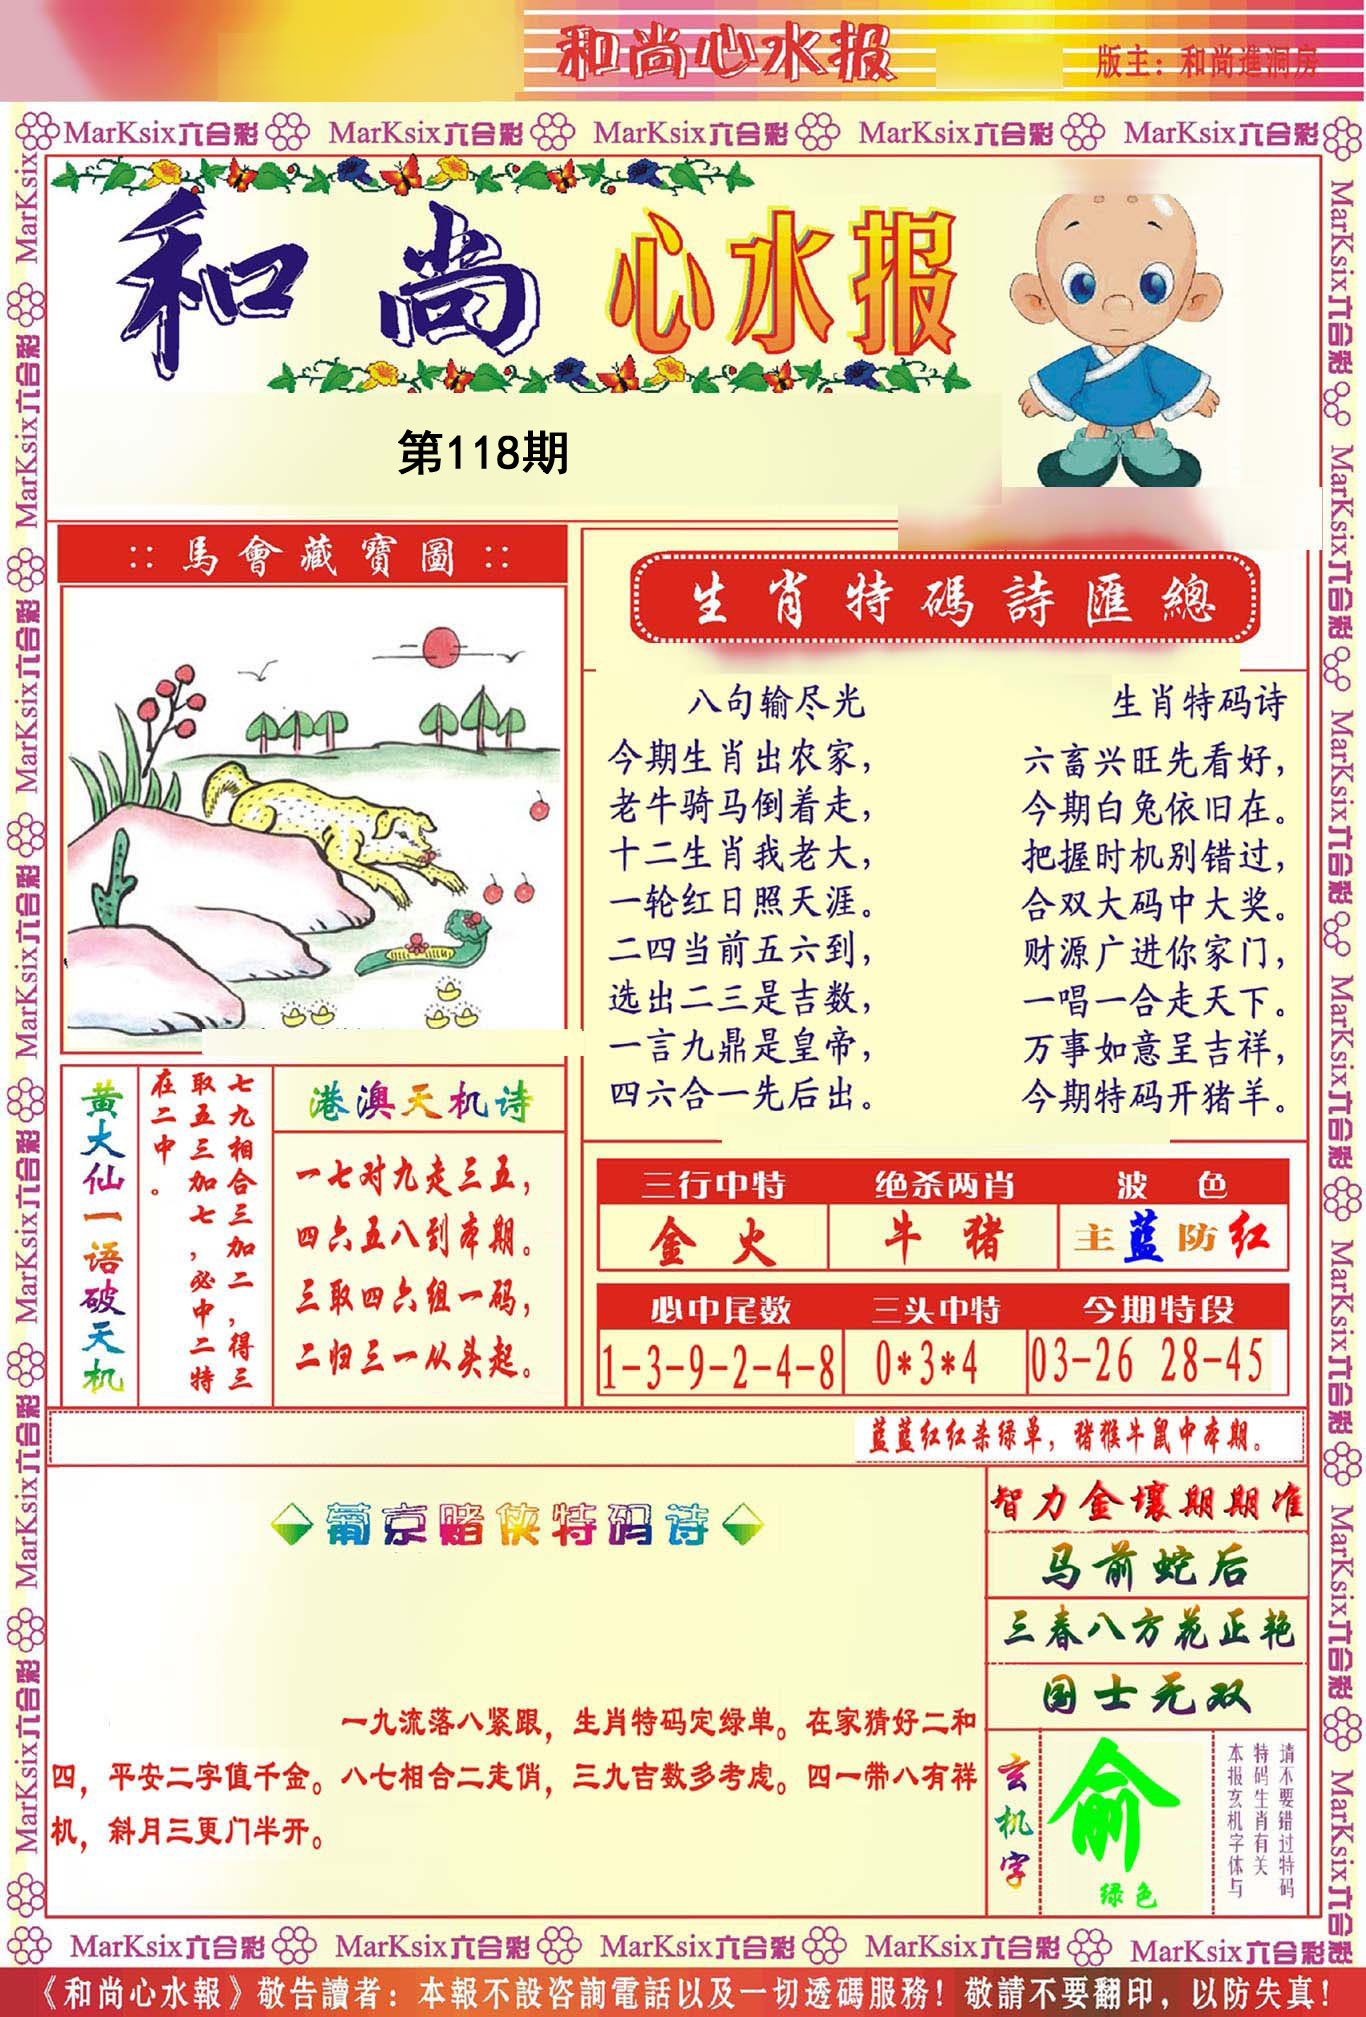 和尚心水报
版主：和尚進洞房
MarKsix六合彩 MarKsix六合彩 MarKsix六合彩 MarKsix六合彩 MarKsix六合彩
和尚心水报
第118期
::馬會藏寶圖::
生肖特碼詩匯總
八句输尽光
今期生肖出农家，
老牛骑马倒着走，
十二生肖我老大，
一轮红日照天涯。
二四当前五六到，
选出二三是吉数，
一言九鼎是皇帝，
四六合一先后出。
生肖特码诗
六畜兴旺先看好，
今期白兔依旧在。
把握时机别错过，
合双大码中大奖。
财源广进你家门，
一唱一合走天下。
万事如意呈吉祥，
今期特码开猪羊。
黄大仙一语破天机
七九相合三加二，得三
取五三加七，必中二特
在二中。
港澳天机诗
一七对九走三五，
四六五八到本期。
三取四六组一码，
二归三一从头起。
三行中特 绝杀两肖 波色
金火 牛猪 主蓝防红
必中尾数 三头中特 今期特段
1-3-9-2-4-8 0*3*4 03-26 28-45
蓝蓝红红杀绿单，猪猴牛鼠中本期。
葡京赌侠特码诗
一九流落八紧跟，生肖特码定绿单。在家猜好二和
四，平安二字值千金。八七相合二走俏，三九吉数多考虑。四一带八有祥
机，斜月三更门半开。
智力金壤期期准
马前蛇后
三春八方花正艳
国士无双
玄机字
俞
绿色
请不要错过特码
特码生肖有关
本报玄机字体与
MarKsix六合彩 MarKsix六合彩 MarKsix六合彩 MarKsix六合彩 MarKsix六合彩
《和尚心水報》敬告讀者：本報不設咨詢電話以及一切透碼服務！敬請不要翻印，以防失真！